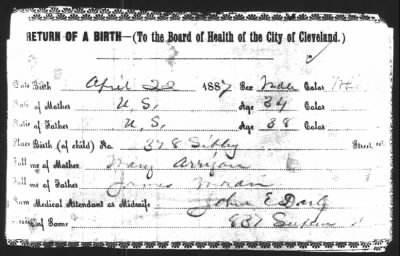 RETURN OF A BIRTH—(To the Board of Health of the City of Cleveland.)
Date Birth April 22 1887 Sex Male Color
of Mother U. S. Age 34 Color
of Father U. S. Age 38 Color
Place Birth (of child) No. 328 Sibley Street,
me of Mother Mary
me of Father James Moran
Medical Attendant or Midwife John E Darby
of Same 837